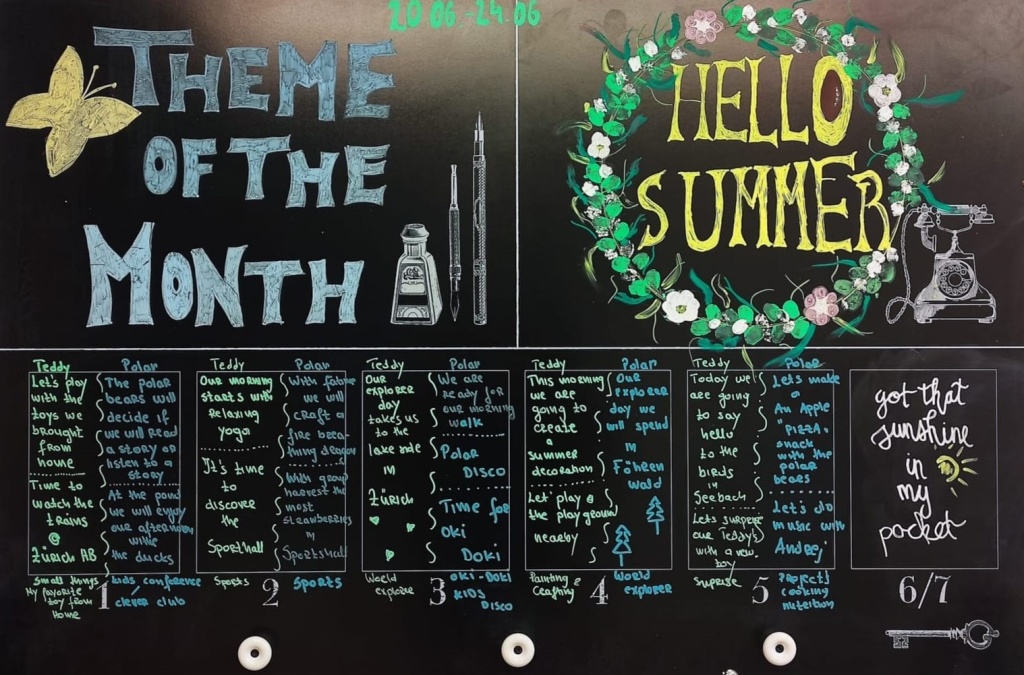 20.06-24.06
THEME
OF THE
MONTH
HELLO
SUMMER
Teddy
Let's play
with the
toys we
brought
from
home
Time to
watch the
trains
@
Zürich AB
Small things
My favorite
toy from
Home
Polar
The polar
bears will
decide if
we will read
a story or
listen to a
story
At the pond
we will enjoy
our afternoon
while
the ducks
kids conference
clever club
1
Teddy
Our morning
starts with
relaxing
yoga
It's time
to
discover
the
Sporthall
Sports
Polar
With
we will
craft a
fire brea-
thing dragon
With group
harvest the
most
strawberries
in
Sportshall
Sports
2
Teddy
Our
explorer
day
takes us
to the
lake side
in
Zürich
World
explore
Polar
We are
ready for
our morning
walk
Polar
DISCO
Time for
Oki
Doki
OKI-DOKI
KIDS
DISCO
3
Teddy
This morning
we are
going to
create
a
summer
decoration
Let' play @
the playground
nearby
Painting &
Crafting
Polar
Our
explorer
day we
will spend
in
Föhren
wald
World
explorer
4
Teddy
Today we
are going
to say
hello
to the
birds
in
Seebach
Lets surprise
our Teddy's
with a new
toy
Suprise
Polar
Lets make
a
An Apple
"PIZZA"
snack
with the
polar
bears
Let's do
music with
Andrej
Project
cooking
nutrition
5
got that
sunshine
in
my
pocket
6/7